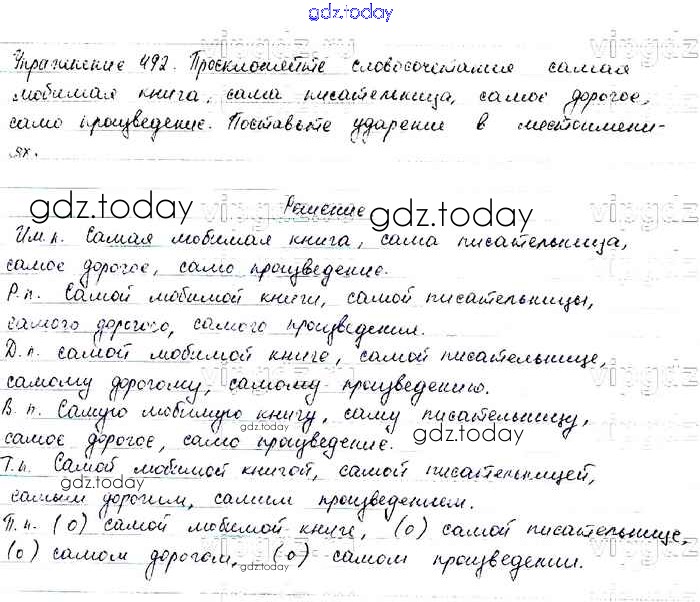 gdz.today
Упражнение 492. Просклоняйте словосочетания самая
любимая книга, сама писательница, самое дорогое,
само произведение. Поставьте ударение в местоимени-
ях.
Решение
gdz.today gdz.today
Им.п. Самая любимая книга, сама писательница,
самое дорогое, само произведение.
Р.п. Самой любимой книги, самой писательницы,
самого дорогого, самого произведения.
Д.п. самой любимой книге, самой писательнице,
самому дорогому, самому произведению.
В.п. Самую любимую книгу, саму писательницу,
самое дорогое, само произведение.
gdz.today gdz.today
Т.п. Самой любимой книгой, самой писательницей,
gdz.today
самым дорогим, самим произведением.
П.п. (о) самой любимой книге, (о) самой писательнице,
(о) самом дорогом, (о) самом произведении.
gdz.today